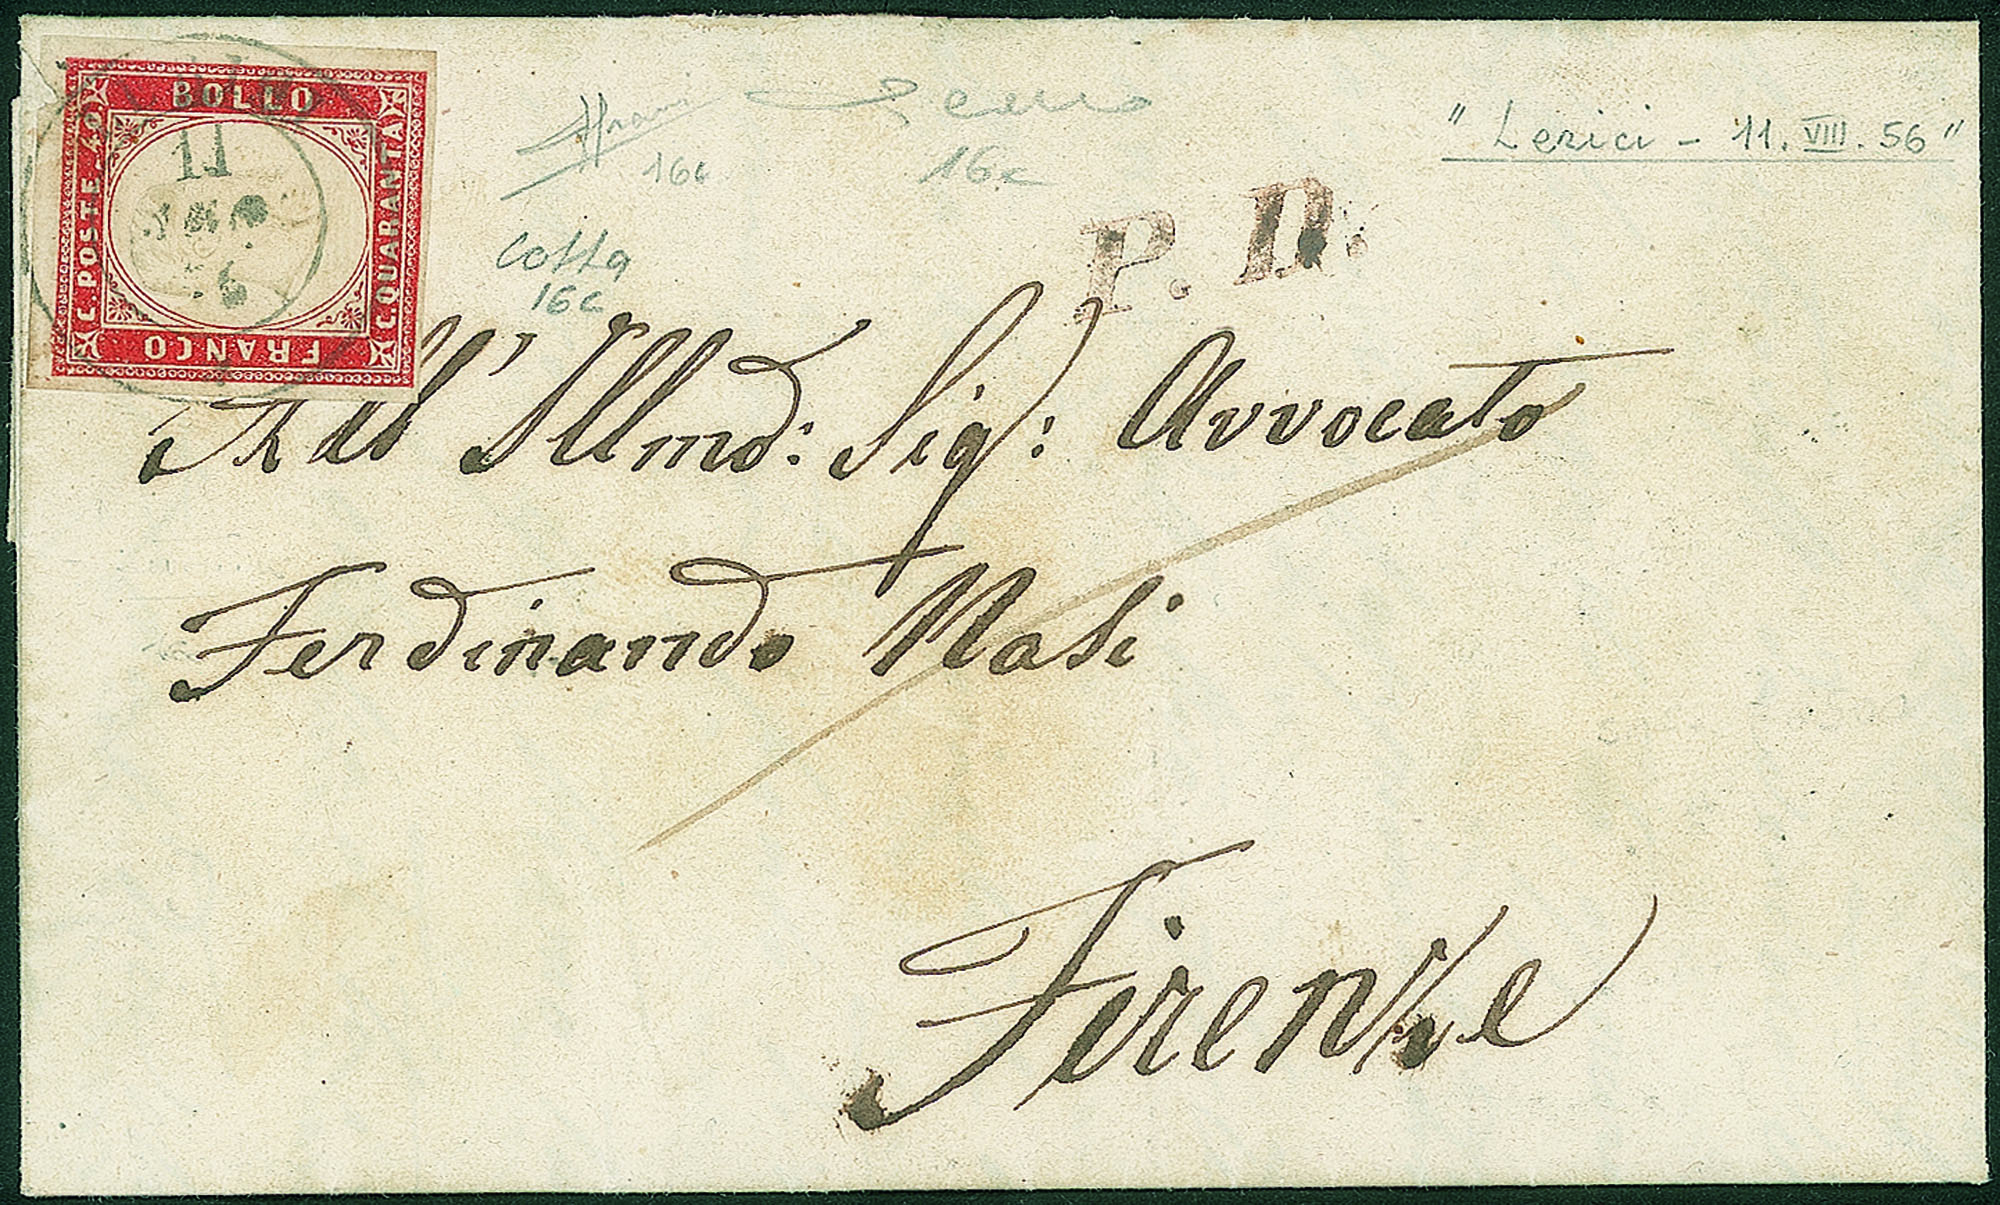 BOLLO
C. POSTE 40.
C. QUARANTA
FRANCO
11
56
16c
16c
" Lerici - 11. VIII. 56 "
P. D.
16c
All' Illmo: Sig: Avvocato
Ferdinando Masi
Firenze